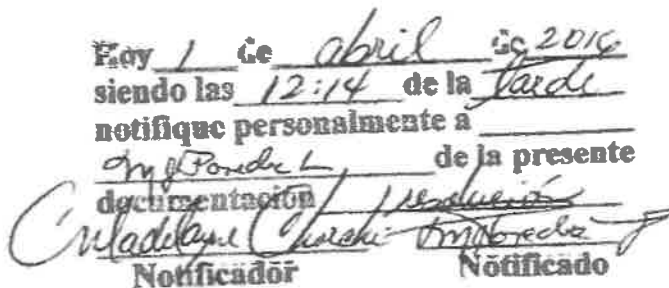 Hoy 1 de abril de 2016
siendo las 12:14 de la tarde
notifique personalmente a
de la presente
documentación resolución
Notificador Notificado